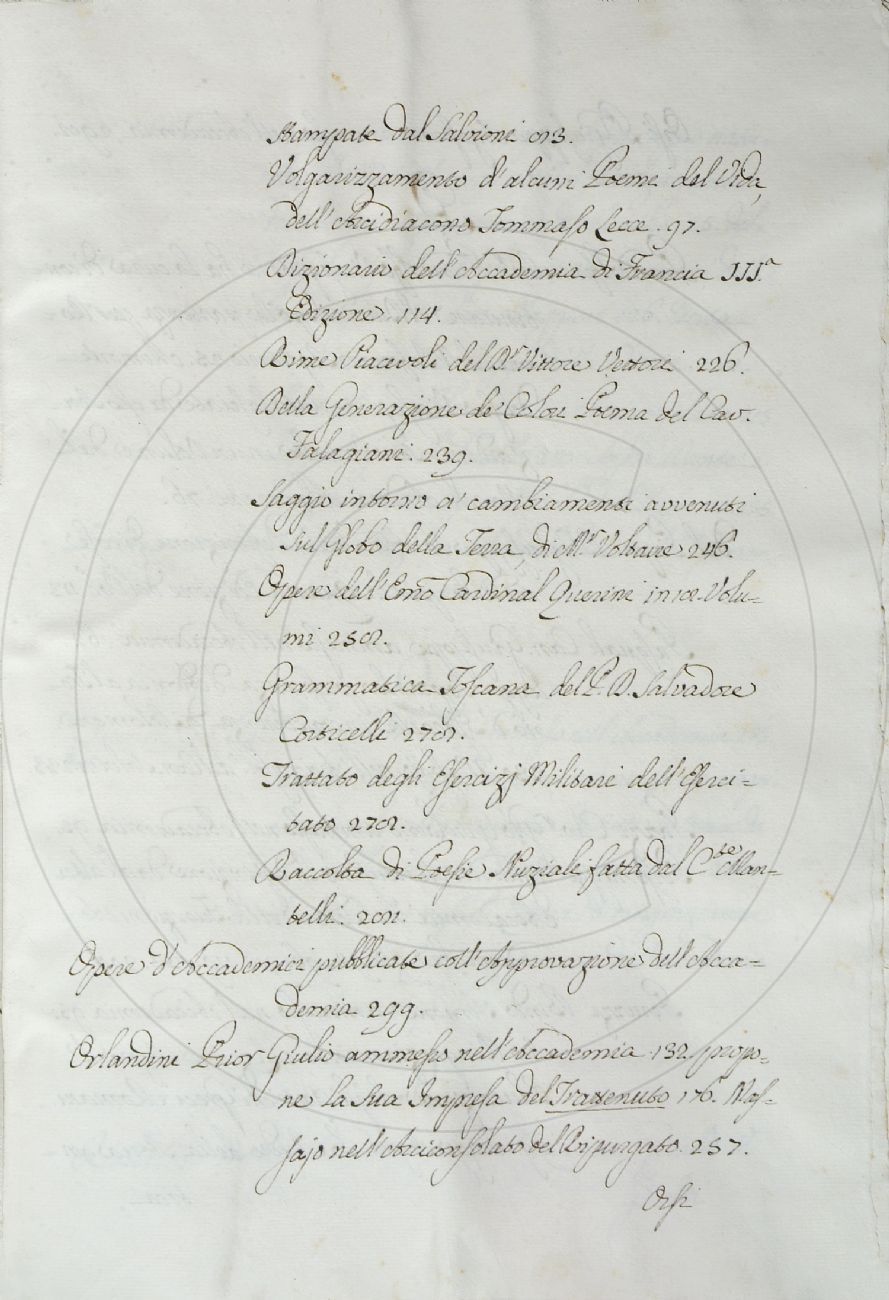 stampate dal Salvioni 93.
Volgarizzamento d'alcuni Poemi del Vida,
dell'Arcidiacono Tommaso Lecce. 97.
Dizionario dell'Accademia di Francia III.ª
Edizione 114.
Rime Piacevoli del D.r Vittore Vettori 226.
Della Generazione de' Colori Poema del Cav.
Falagiani. 239.
Saggio intorno a' cambiamenti avvenuti
sul Globo della Terra, di Mr. Voltaire 246.
Opere dell'Emo Cardinal Querini in Volu-
mi
Grammatica Toscana del P. D. Salvadore
Corticelli
Trattato degli Esercizj Militari dell'Eserci-
tato
Raccolta di Poesie Nuziali fatta dal C.te Man-
telli.
Opere d'Accademici pubblicate coll'Approvazione dell'Acca-
demia 299.
Orlandini Prior Giulio ammesso nell'Accademia 132. propo-
ne la sua Impresa del Trattenuto 176. Mas-
sajo nell'Arciconsolato del Ripurgato. 257.
Orsi